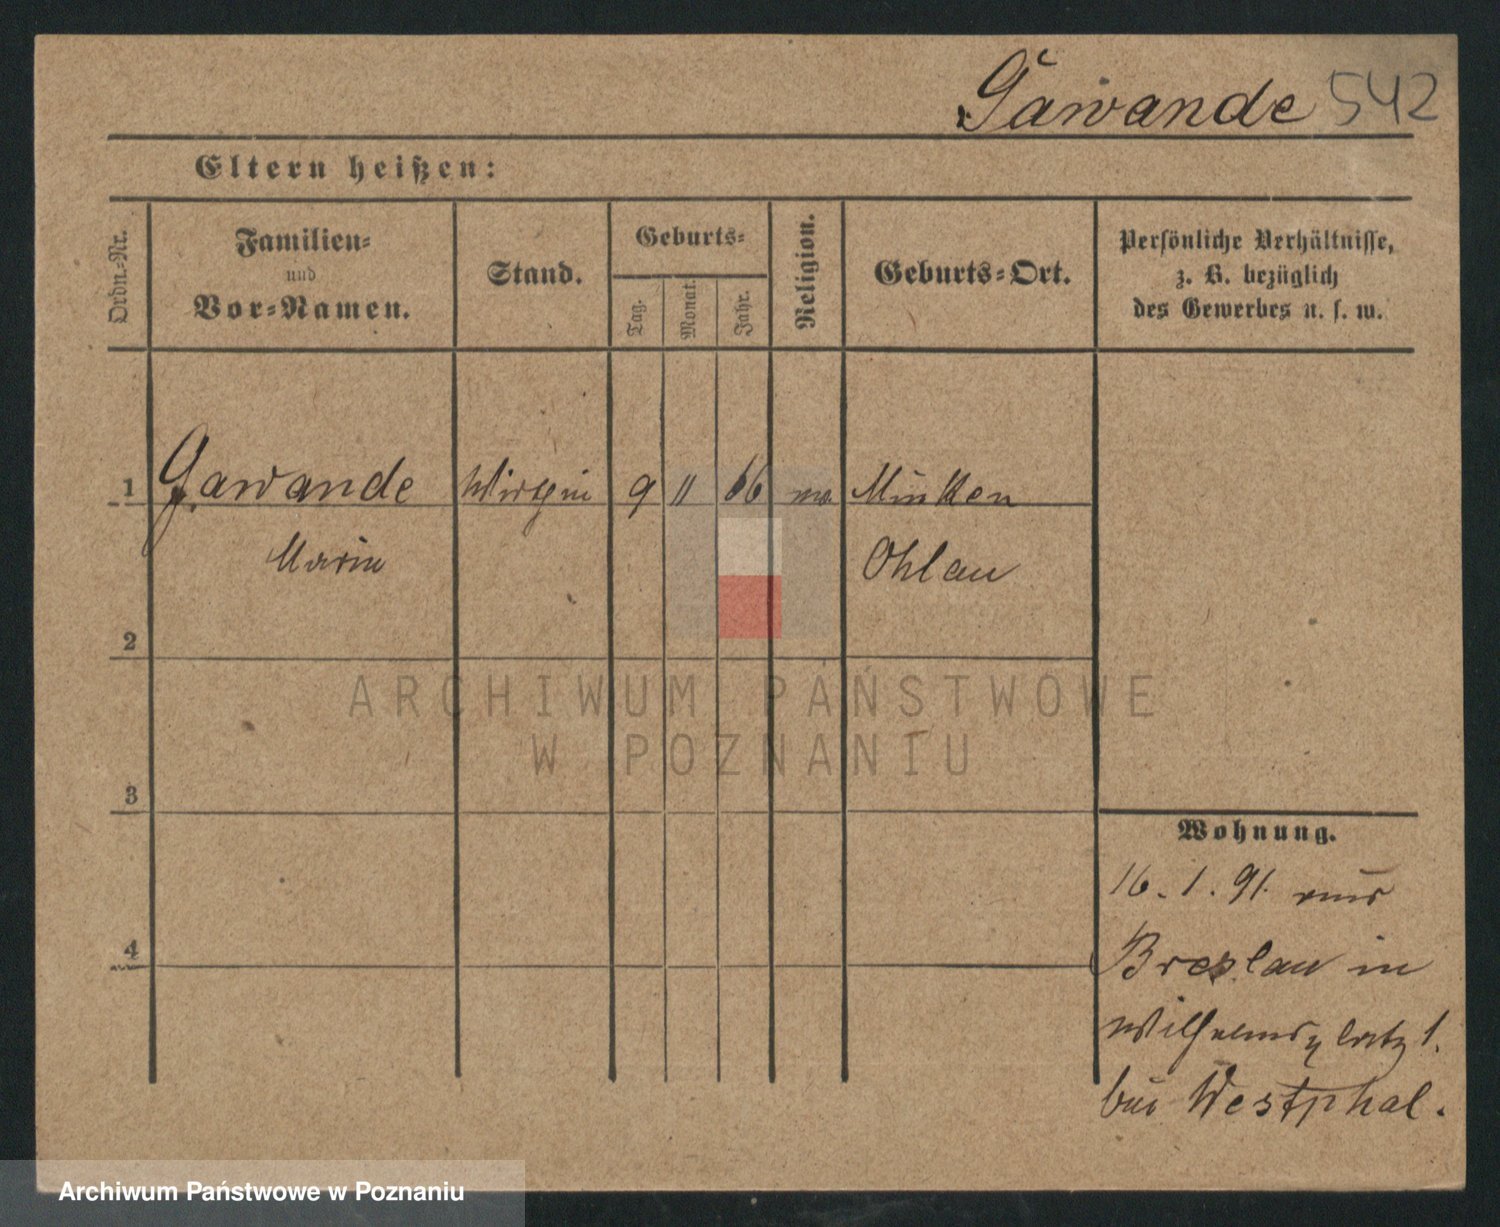 Gawande 542
Eltern heißen:
Ordn.-Nr.
Familien-
und
Vor-Namen.
Stand.
Geburts-
Tag.
Monat.
Jahr.
Religion.
Geburts-Ort.
Persönliche Verhältnisse,
z. B. bezüglich
des Gewerbes u. s. w.
1 Gawande 9 11 66 Minken
Marie Ohlau
2
ARCHIWUM PAŃSTWOWE
W POZNANIU
3
Wohnung.
16.1.91. aus
4
Breslau in
Wilhelmsplatz 1.
bei Westphal.
Archiwum Państwowe w Poznaniu